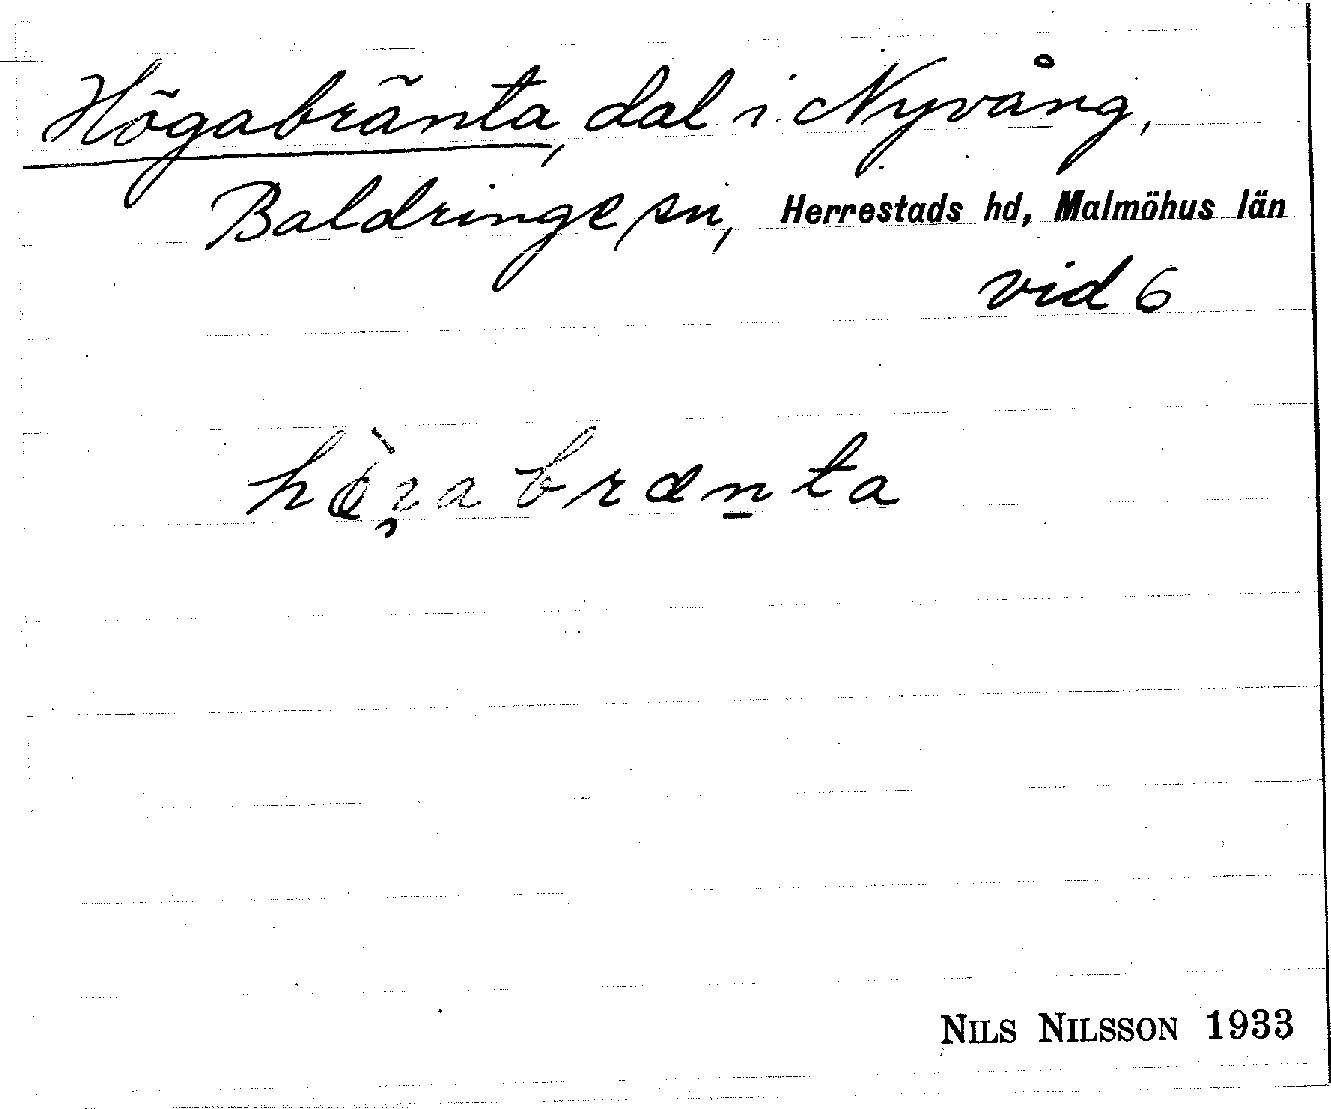 Högabränta, dal i Nyvång,
Baldringe sn, Herrestads hd, Malmöhus län
vid 6
NILS NILSSON 1933